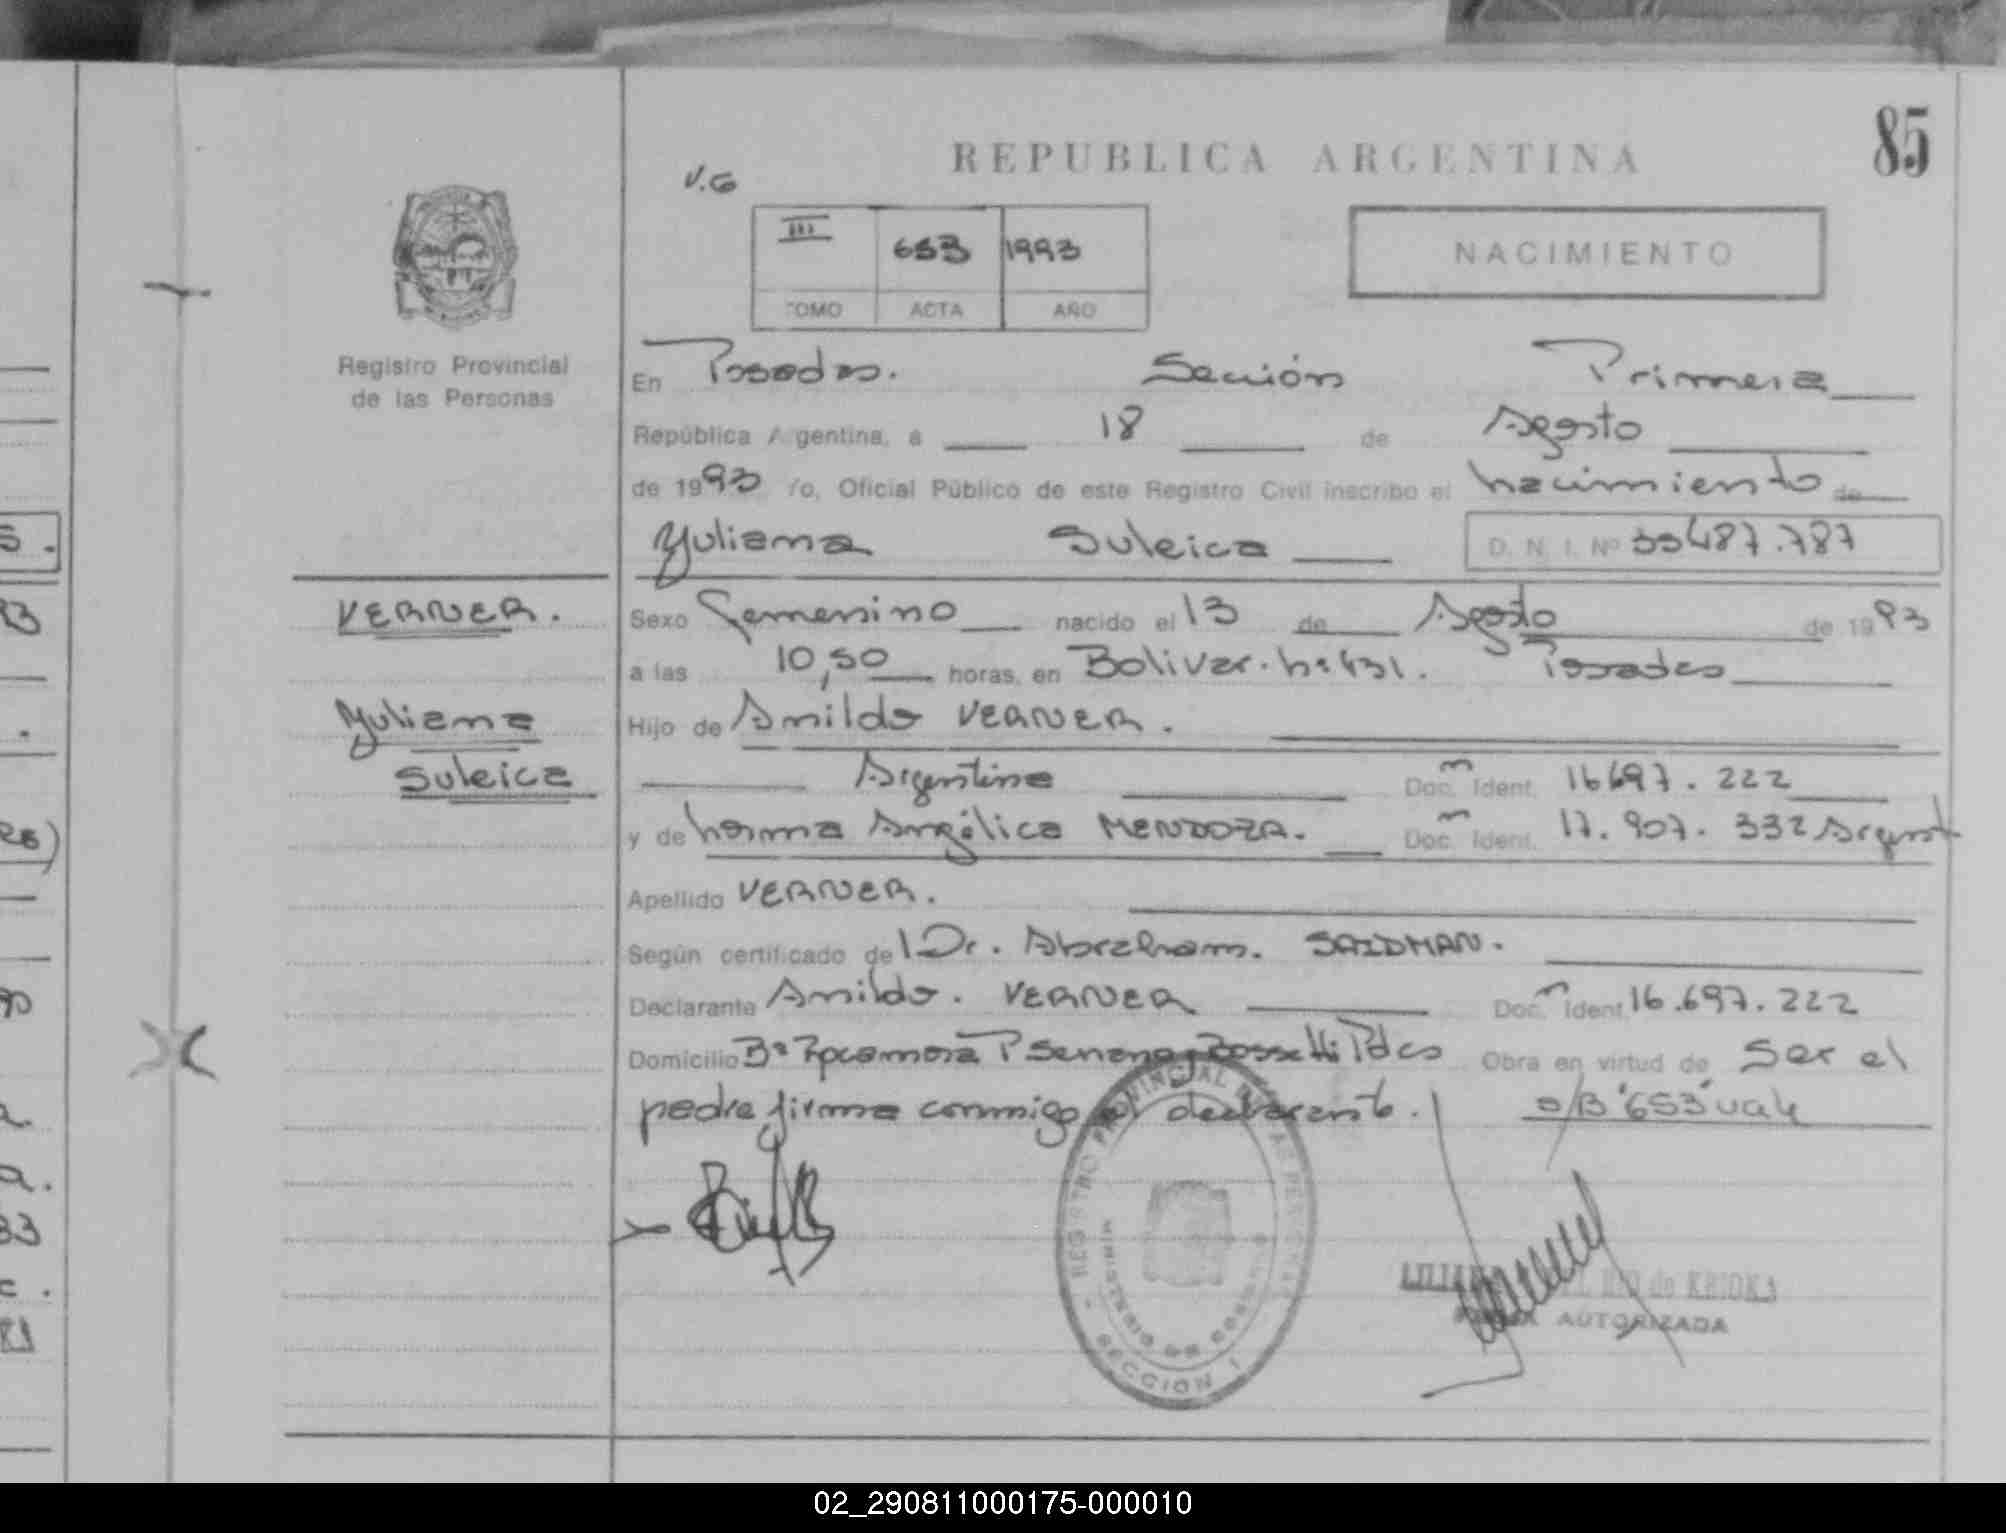 85
REPUBLICA ARGENTINA
V.G
III 653 1993
TOMO ACTA AÑO
NACIMIENTO
Registro Provincial
de las Personas
En Posadas. Sección Primera
República Argentina, a 18 de Agosto
de 1993 Yo, Oficial Público de este Registro Civil inscribo el nacimiento de
Yuliana Suleica D. N. I. Nº 33487.787
VERNER.
Yuliana
Suleica
Sexo Femenino nacido el 13 de Agosto de 1993
a las 10,50 horas, en Bolivar. nº431. Posadas
Hijo de Anildo VERNER.
Argentina Doc. Ident. 16697.222
y de Norma Angélica MENDOZA. Doc. Ident. 17.907.332 Argent
Apellido VERNER.
Según certificado del Dr. Abraham. SAIDMAN.
Declarante Anildo. VERNER Doc. Ident. 16.697.222
Domicilio Bº P Rossetti Pdas Obra en virtud de Ser el
padre firma conmigo el declarante. s/B "653" vale
REGISTRO PROVINCIAL DE LAS PERSONAS
MINISTERIO DE GOBIERNO
SECCION 1
LILIANA DEL RIO de
AUTORIZADA
5.
93
.
Rs)
90
a.
a.
33
c.
02_290811000175-000010